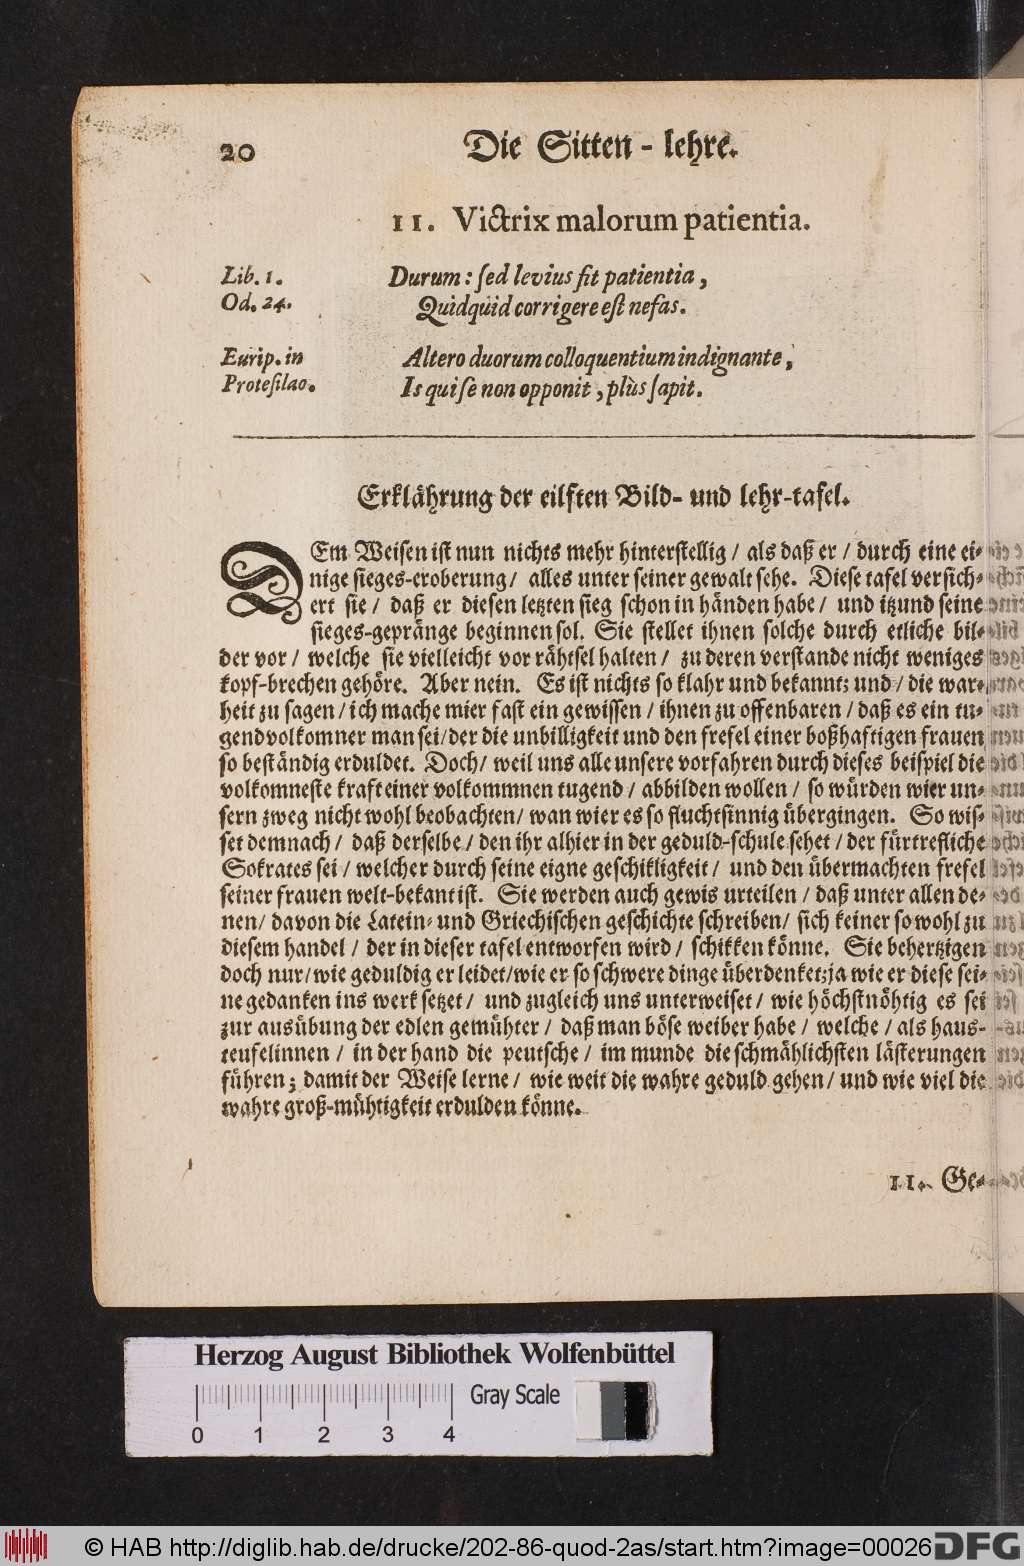 20 Die Sitten-lehre.
11. Victrix malorum patientia.
Lib. 1. Durum: ſed levius fit patientia,
Od. 24. Quidquid corrigere eſt nefas.
Eurip. in Altero duorum colloquentium indignante,
Proteſilao. Is qui ſe non opponit, plùs ſapit.
Erklährung der eilften Bild- und lehr-tafel.
DEm Weiſen iſt nun nichts mehr hinterſtellig / als daß er / durch eine ei-
nige ſieges-eroberung / alles unter ſeiner gewalt ſehe. Dieſe tafel verſich-
ert ſie / daß er dieſen letzten ſieg ſchon in händen habe / und itzund ſeine
ſieges-gepränge beginnen ſol. Sie ſtellet ihnen ſolche durch etliche bil-
der vor / welche ſie vielleicht vor rähtſel halten / zu deren verſtande nicht weniges
kopf-brechen gehöre. Aber nein. Es iſt nichts ſo klahr und bekannt; und / die war-
heit zu ſagen / ich mache mier faſt ein gewiſſen / ihnen zu offenbaren / daß es ein tu-
gendvolkomner man ſei / der die unbilligkeit und den frefel einer boßhaftigen frauen
ſo beſtändig erduldet. Doch / weil uns alle unſere vorfahren durch dieſes beiſpiel die
volkomneſte kraft einer volkommnen tugend / abbilden wollen / ſo würden wier un-
ſern zweg nicht wohl beobachten / wan wier es ſo fluchtſinnig übergingen. So wiſ-
ſet demnach / daß derſelbe / den ihr alhier in der geduld-ſchule ſehet / der fürtrefliche
Sokrates ſei / welcher durch ſeine eigne geſchikligkeit / und den übermachten frefel
ſeiner frauen welt-bekant iſt. Sie werden auch gewis urteilen / daß unter allen de-
nen / davon die Latein- und Griechiſchen geſchichte ſchreiben / ſich keiner ſo wohl zu
dieſem handel / der in dieſer tafel entworfen wird / ſchikken könne. Sie behertzigen
doch nur / wie geduldig er leidet / wie er ſo ſchwere dinge überdenket; ja wie er dieſe ſei-
ne gedanken ins werk ſetzet / und zugleich uns unterweiſet / wie höchſtnöhtig es ſei
zur ausübung der edlen gemühter / daß man böſe weiber habe / welche / als haus-
teufelinnen / in der hand die peutſche / im munde die ſchmählichſten läſterungen
führen; damit der Weiſe lerne / wie weit die wahre geduld gehen / und wie viel die
wahre groß-mühtigkeit erdulden könne.
11. Ge-
Herzog August Bibliothek Wolfenbüttel
Gray Scale
0 1 2 3 4
© HAB http://diglib.hab.de/drucke/202-86-quod-2as/start.htm?image=00026
DFG